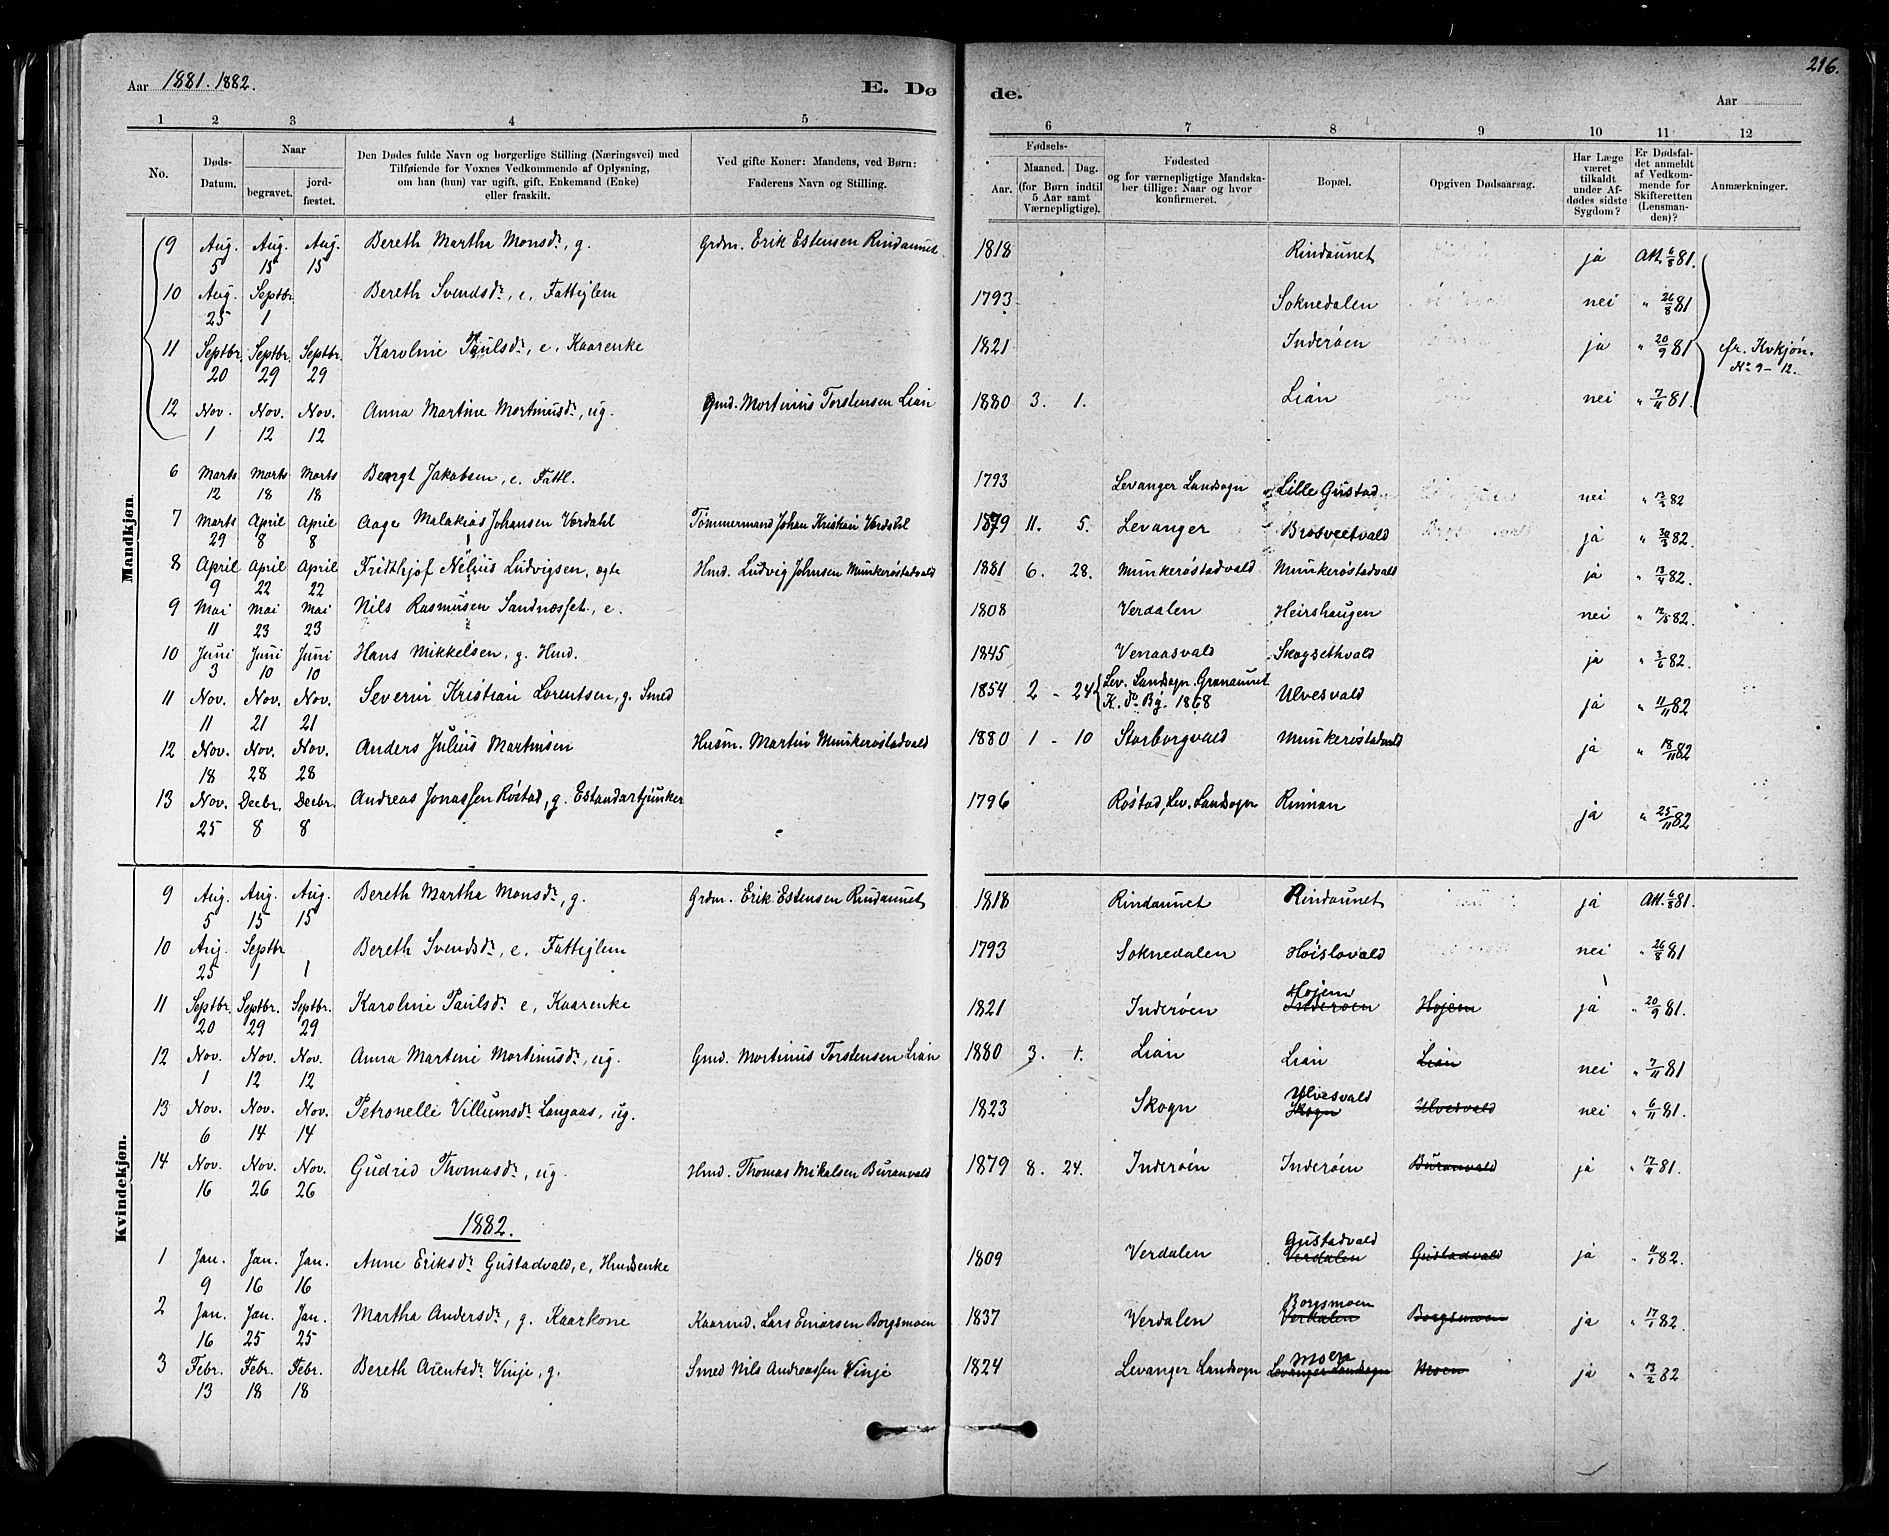 216.
Aar 1881. 1882. E. Dø de. Aar
1 2 3 4 5 6 7 8 9 10 11 12
No. Døds-Datum. Naar begravet. jordfæstet. Den Dødes fulde Navn og borgerlige Stilling (Næringsvei) med Tilføiende for Voxnes Vedkommende af Oplysning, om han (hun) var ugift, gift, Enkemand (Enke) eller fraskilt. Ved gifte Koner: Mandens, ved Børn: Faderens Navn og Stilling. Fødsels- Aar. Maaned. Dag. (for Børn indtil 5 Aar samt Værnepligtige). Fødested og for værnepligtige Mandskaber tillige: Naar og hvor konfirmeret. Bopæl. Opgiven Dødsaarsag. Har Læge været tilkaldt under Afdødes sidste Sygdom? Er Dødsfaldet anmeldt af Vedkommende for Skifteretten (Lensmanden)? Anmærkninger.
Mandkjøn.
9 Aug. 5 Aug. 15 Aug. 15 Bereth Martha Monsdr, g. Grdm. Erik Estensen Rindaunet 1818 Rindaunet ja Att. 6/8 81.
10 Aug. 25 Septbr. 1 Bereth Svendsdr, e, Fattiglem 1793 Soknedalen nei " 26/8 81
11 Septbr. 20 Septbr. 29 Septbr. 29 Karoline Paulsdr, e, Kaarenke 1821 Inderøen ja " 20/9 81 cfr. Kvkjøn. No 9-12.
12 Nov. 1 Nov. 12 Nov. 12 Anna Martine Mortinusdr, ug. Gmd. Mortinus Torstensen Lian 1880 3. 1. Lian nei " 7/11 81.
6 Marts 12 Marts 18 Marts 18 Bengt Jakobsen, e. Fattl. 1793 Levanger Landsogn Lille Gustad nei " 13/3 82
7 Marts 29 April 8 April 8 Aage Malakias Johansen Vordahl Tømmermand Johan Kristian Vordahl 1879 11. 5. Levanger Brosveetvald ja " 30/3 82.
8 April 9 April 22 April 22 Fridthjof Nelius Ludvigsen, ægte Hmd. Ludvig Johnsen Munkerøstadvald 1881 6. 28. Munkerøstadvald Munkerøstadvald ja " 13/4 82.
9 Mai 11 Mai 23 Mai 23 Nils Rasmusen Sandnesset, e. 1808 Verdalen Heirshaugen nei " 12/5 82.
10 Juni 3 Juni 10 Juni 10 Hans Mikkelsen, g. Hmd. 1845 Venaasvald Skogsethvald ja " 3/6 82.
11 Nov. 11 Nov. 21 Nov. 21 Severin Kristian Lorentsen, g. Smed 1854 2 - 24 Lev. Landsogn. Granaunet K. do By. 1868 Ulvesvald ja " 11/11 82
12 Nov. 18 Nov. 28 Nov. 28 Anders Julius Martinsen Husm. Martin Munkerøstadvald 1880 1 - 10 Storborgvald Munkeröstadvald ja " 18/11 82
13 Nov. 25 Decbr. 8 Decbr. 8 Andreas Jonassen Röstad, g. Estandartjunker 1796 Røstad, Lev. Landsogn Rinnan ja " 25/11 82
Kvindekjøn.
9 Aug. 5 Aug. 15 Aug. 15 Bereth Martha Monsdr, g. Grdm. Erik Estensen Rindaunet 1818 Rindaunet Rindaunet ja Att. 6/8 81.
10 Aug. 25 Septbr 1 1 Bereth Svendsdr, e, Fattiglem 1793 Soknedalen Høislovald nei " 26/8 81
11 Septbr. 20 Septbr. 29 Septbr. 29 Karoline Paulsdr e, Kaarenke 1821 Inderøen Hojem Inderøen Hojem ja " 20/9 81.
12 Nov. 1 Nov. 12 Nov. 12 Anna Martine Mortinusdr, ug. Gmd. Mortinus Torstensen Lian 1880 3. 1. Lian Lian Lian nei " 7/11 81
13 Nov. 6 Nov. 14 Nov. 14 Petronelle Villumsdr Langaas, ug. 1823 Skogn Ulvesvald Skogn Ulvesvald nei " 6/11 81.
14 Nov. 16 Nov. 26 Nov. 26 Gudrid Thomasdr, ug. Hmd. Thomas Mikalsen Buranvald 1879 8. 24. Inderøen Inderøen Buranvald ja " 17/11 81.
1882.
1 Jan. 9 Jan. 16 Jan. 16 Anne Eriksdr Gustadvald, e, Hmdsenke 1809 Verdalen Gustadvald Verdalen Gustadvald ja " 11/1 82.
2 Jan. 16 Jan. 25 Jan. 25 Martha Andersdr, g. Kaarkone Kaarmd. Lars Einarsen Borgsmoen 1837 Verdalen Borgsmoen Verdalen Borgsmoen ja " 17/1 82.
3 Febr. 13 Febr. 18 Febr. 18 Bereth Arentsdr Vinje, g. Smed Nils Andreassen Vinje 1824 Levanger Landsogn Moen Levanger Landsogn Moen ja " 13/2 82